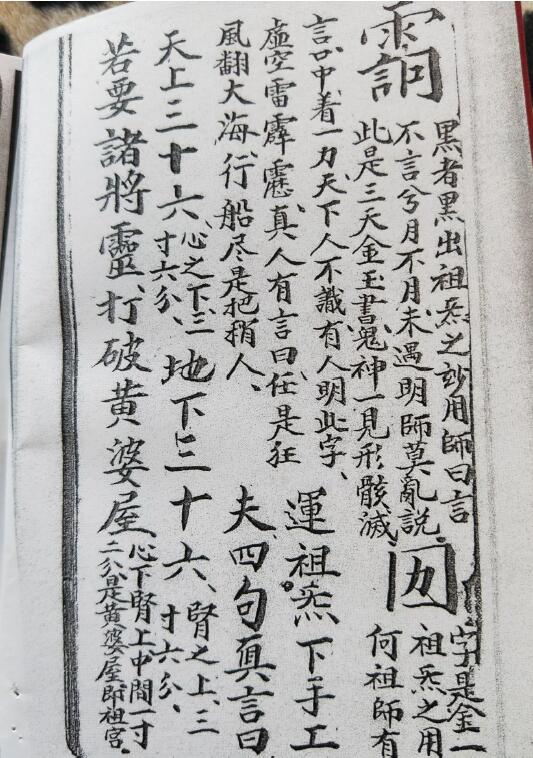 黑者黑出祖炁之妙用師曰言
不言兮月不月未遇明師莫亂說
此是三天金玉書鬼神一見形骸滅
字是金一
祖炁之用
何祖師有
言口中着一力天下人不識有人明此字、
虛空雷霹靂真人有言曰任是狂
風翻大海行船尽是把稍人、
運祖炁下手工
夫四句真言曰
天上三十六、心之下三寸六分、地下三十六、腎之上、三寸六分、
若要諸將靈、打破黃婆屋、心下腎上中間一寸二分是黃婆屋即祖宮、